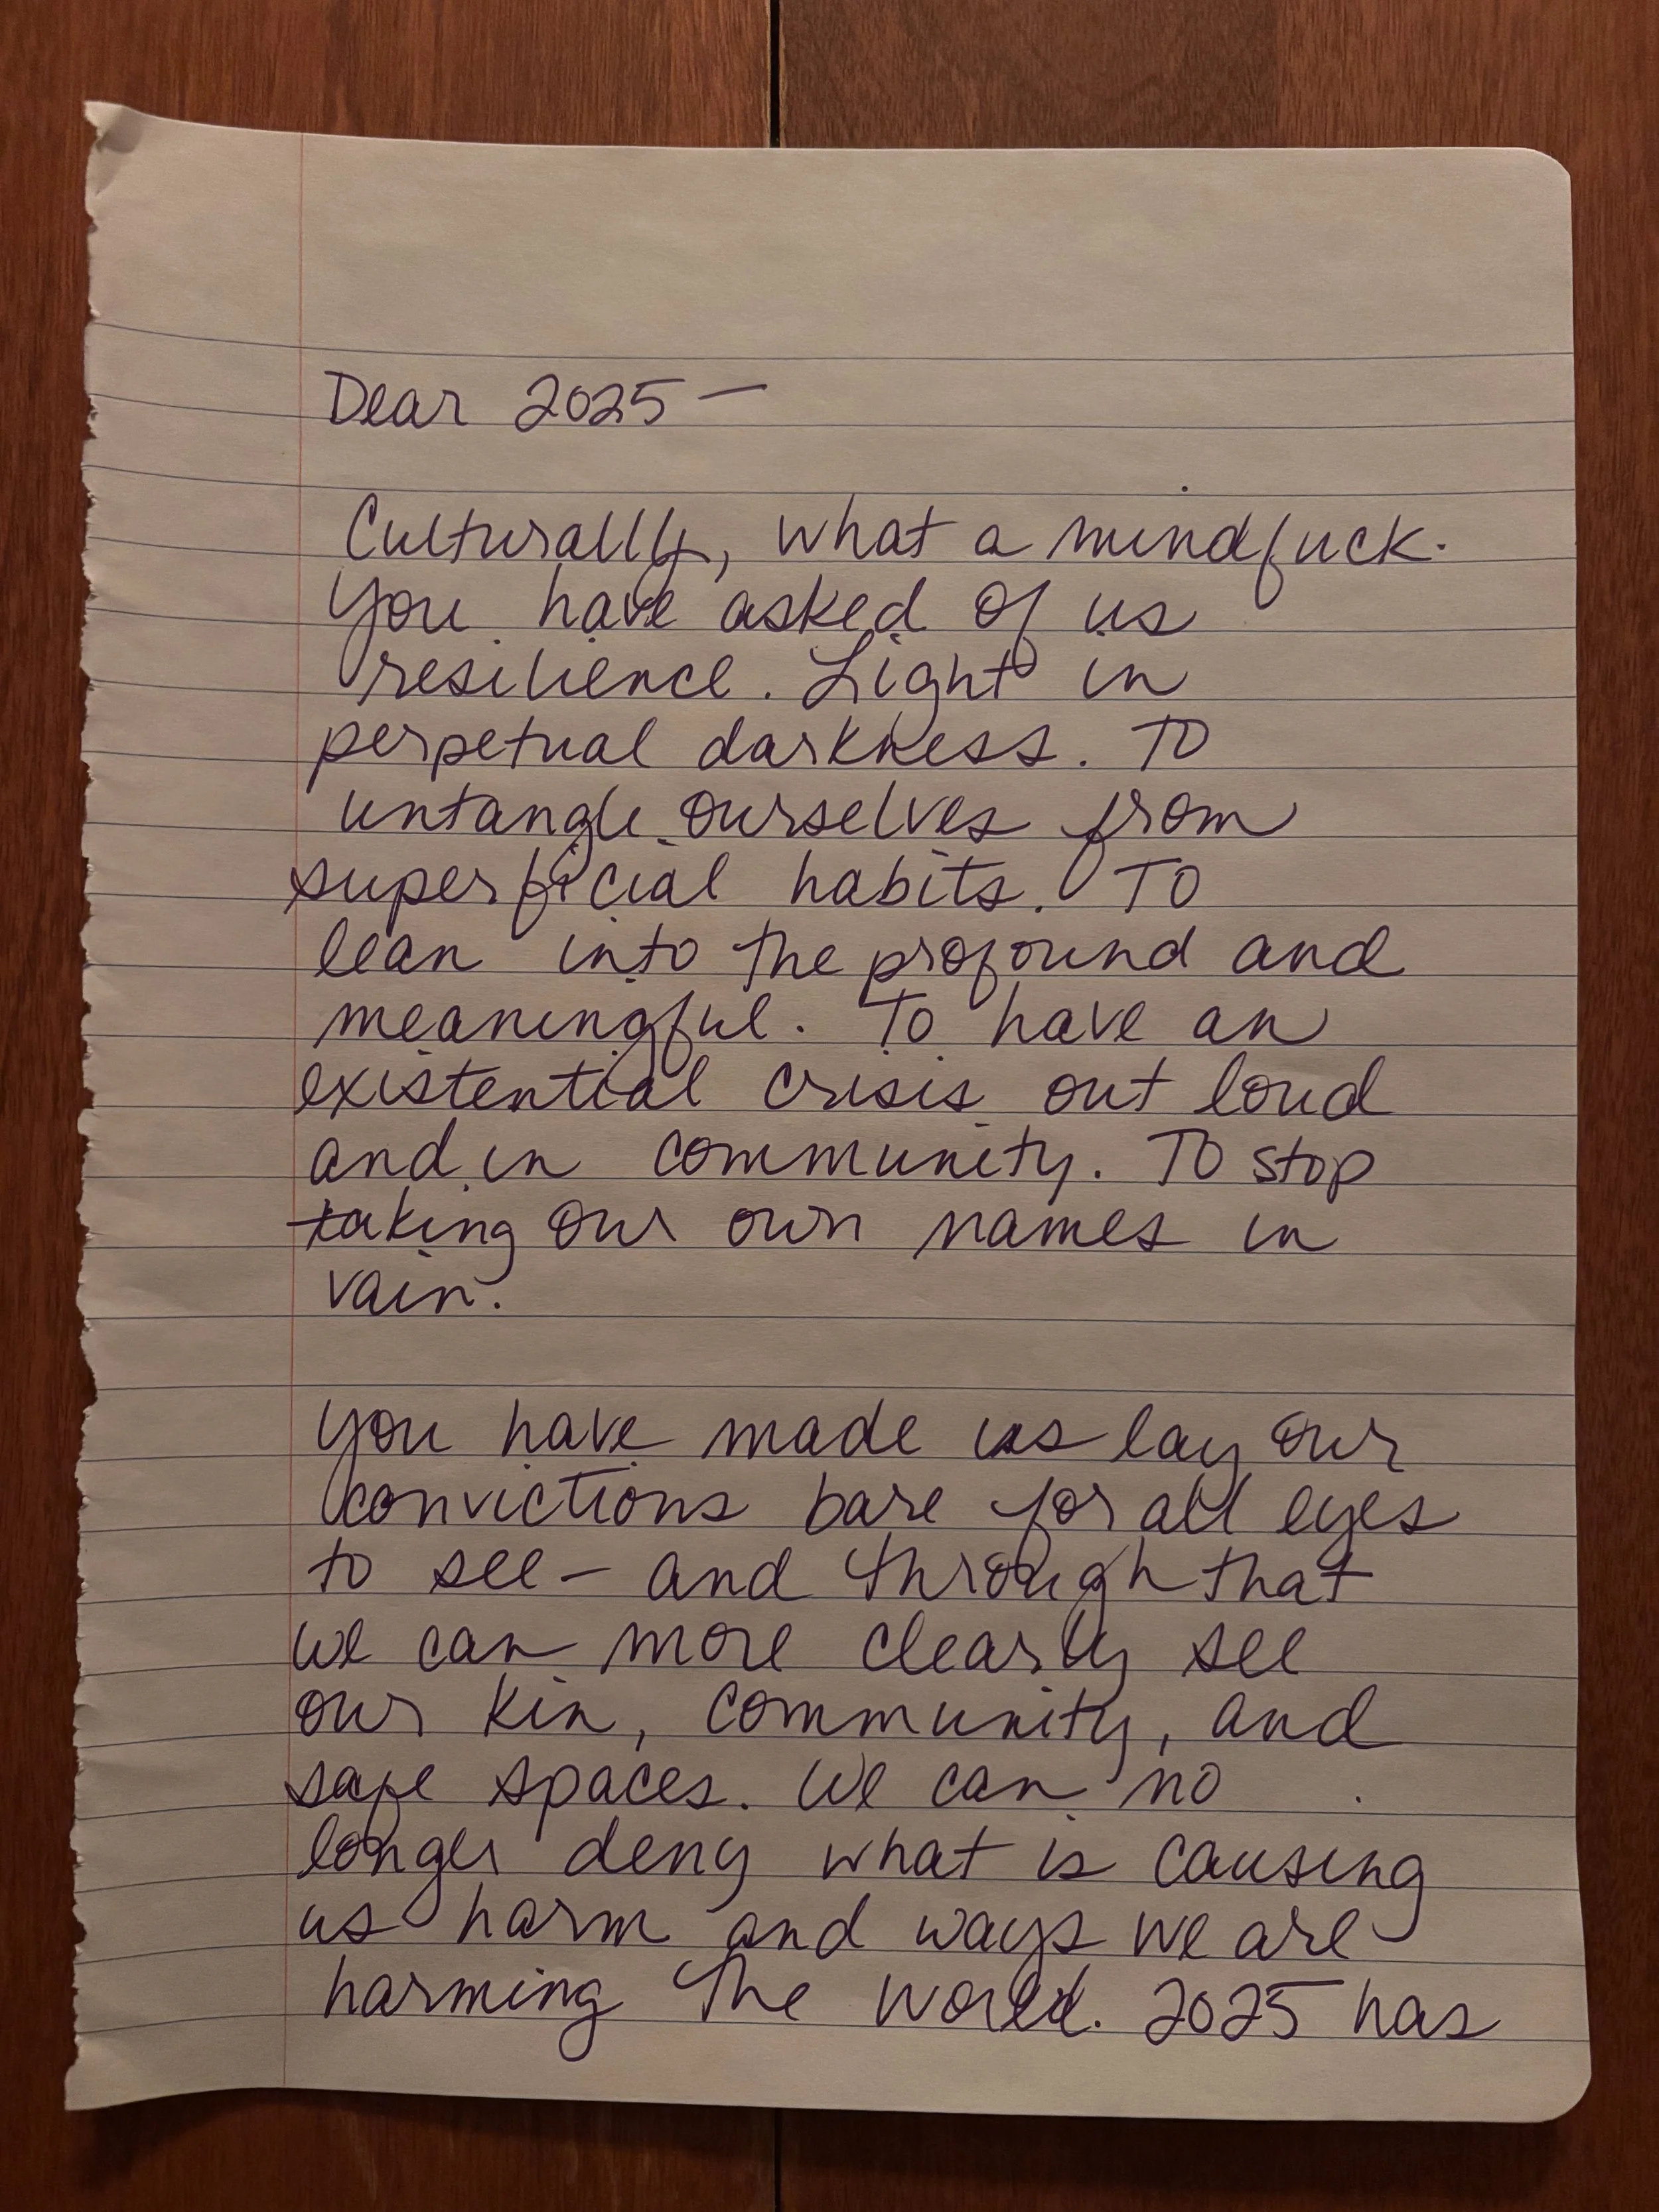 Dear 2025 —
Culturally, what a mindfuck.
You have asked of us
resilience. Light in
perpetual darkness. To
untangle ourselves from
superficial habits. To
lean into the profound and
meaningful. To have an
existential crisis out loud
and in community. To stop
taking our own names in
vain.
You have made us lay our
convictions bare for all eyes
to see — and through that
we can more clearly see
our kin, community, and
safe spaces. We can no
longer deny what is causing
us harm and ways we are
harming the world. 2025 has